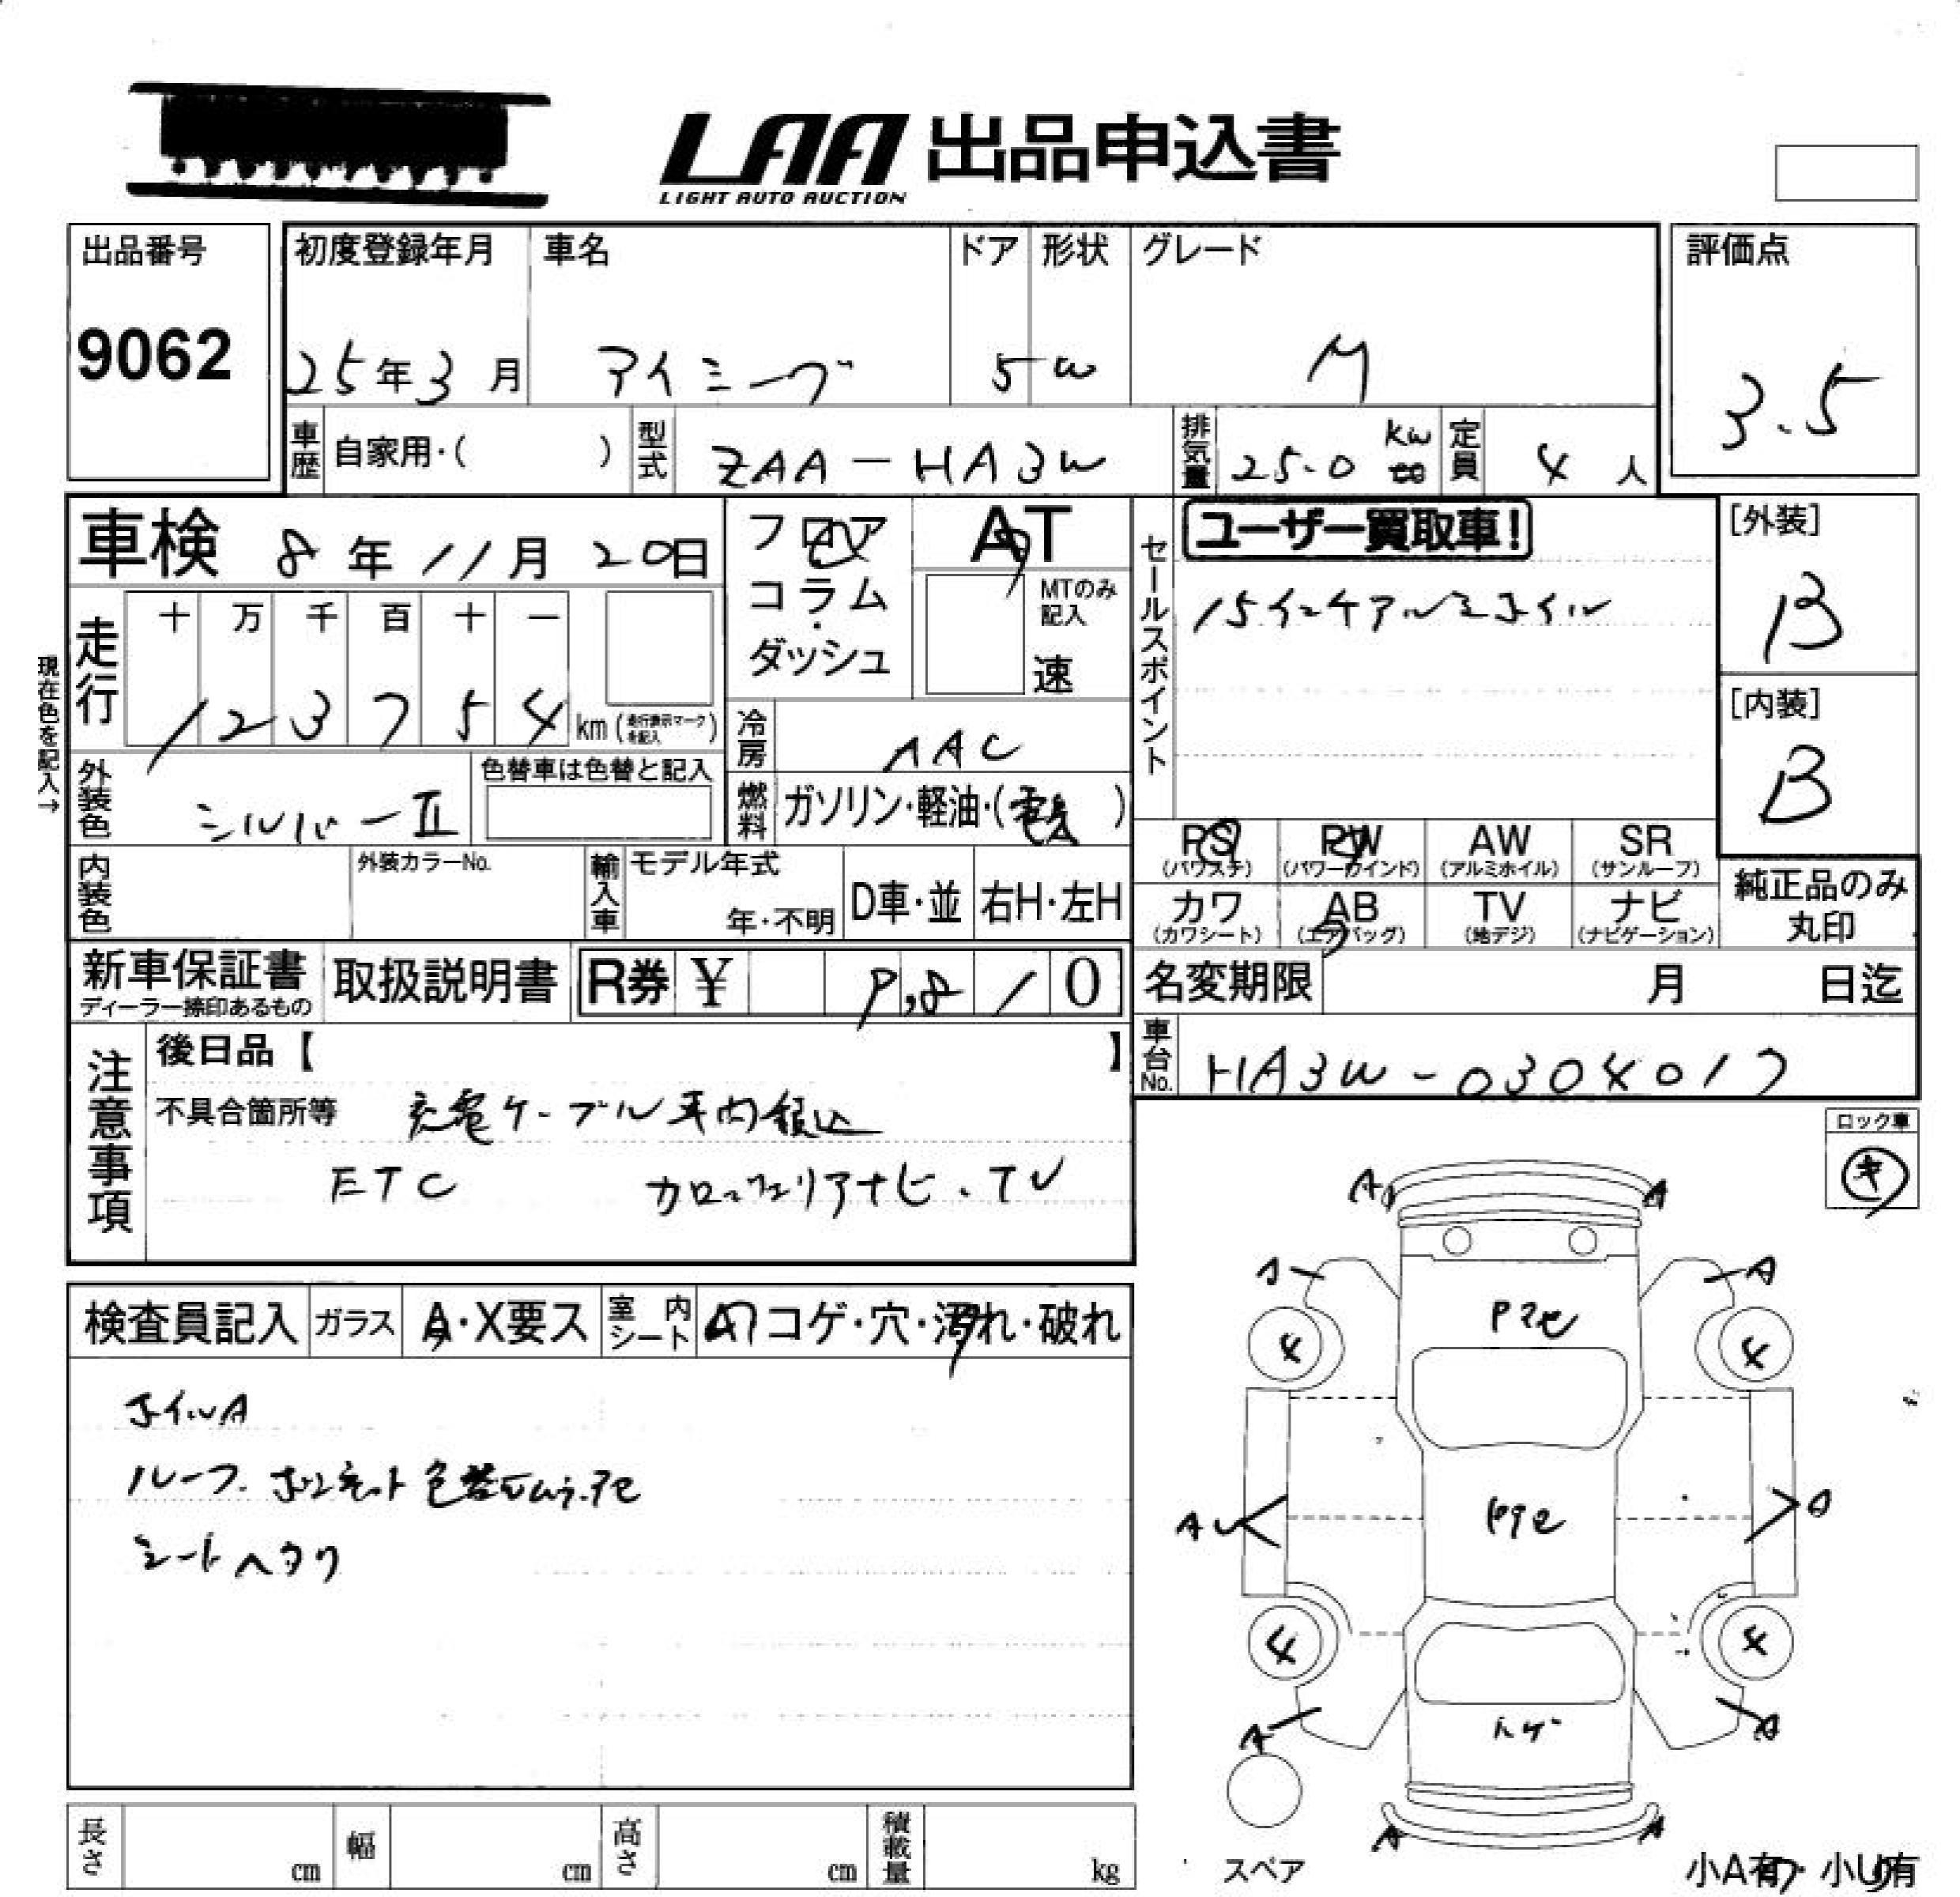 LAA 出品申込書
LIGHT AUTO AUCTION
出品番号
9062
初度登録年月
25年3月
車名
アイミーブ
ドア
5
形状
W
グレード
M
評価点
3.5
車歴
自家用・( )
型式
ZAA-HA3W
排気量
25.0 KW
定員
4人
車検 8年11月20日
フロア
コラム
・
ダッシュ
AT
MTのみ
記入
速
セールスポイント
ユーザー買取車!
15インチアルミホイル
[外装]
B
[内装]
B
現在色を記入→
走行
十 万 千 百 十 一
1 2 3 7 5 4 km (走行表示マークを記入)
冷房
AAC
外装色
シルバーII
色替車は色替と記入
燃料
ガソリン・軽油・(電気)
PS
(パワステ)
PW
(パワーウインド)
AW
(アルミホイル)
SR
(サンルーフ)
カワ
(カワシート)
AB
(エアバッグ)
TV
(地デジ)
ナビ
(ナビゲーション)
純正品のみ
丸印
内装色
外装カラーNo.
輸入車
モデル年式
年・不明
D車・並
右H・左H
新車保証書
ディーラー捺印あるもの
取扱説明書
R券 ¥ 9,810
名変期限 月 日迄
車台No.
HA3W-0304017
注意事項
後日品【 】
不具合箇所等 充電ケーブル車内積込
ETC カロッツェリアナビ・TV
ロック車
キ
検査員記入
ガラス
A・X要ス
室内シート
コゲ・穴・汚れ・破れ
ホイルA
ルーフ.ボンネット
シートヘタリ
A A
A A
4 4
A
4 4
A A
A A
スペア
小A有・小U有
長さ cm
幅 cm
高さ cm
積載量 kg